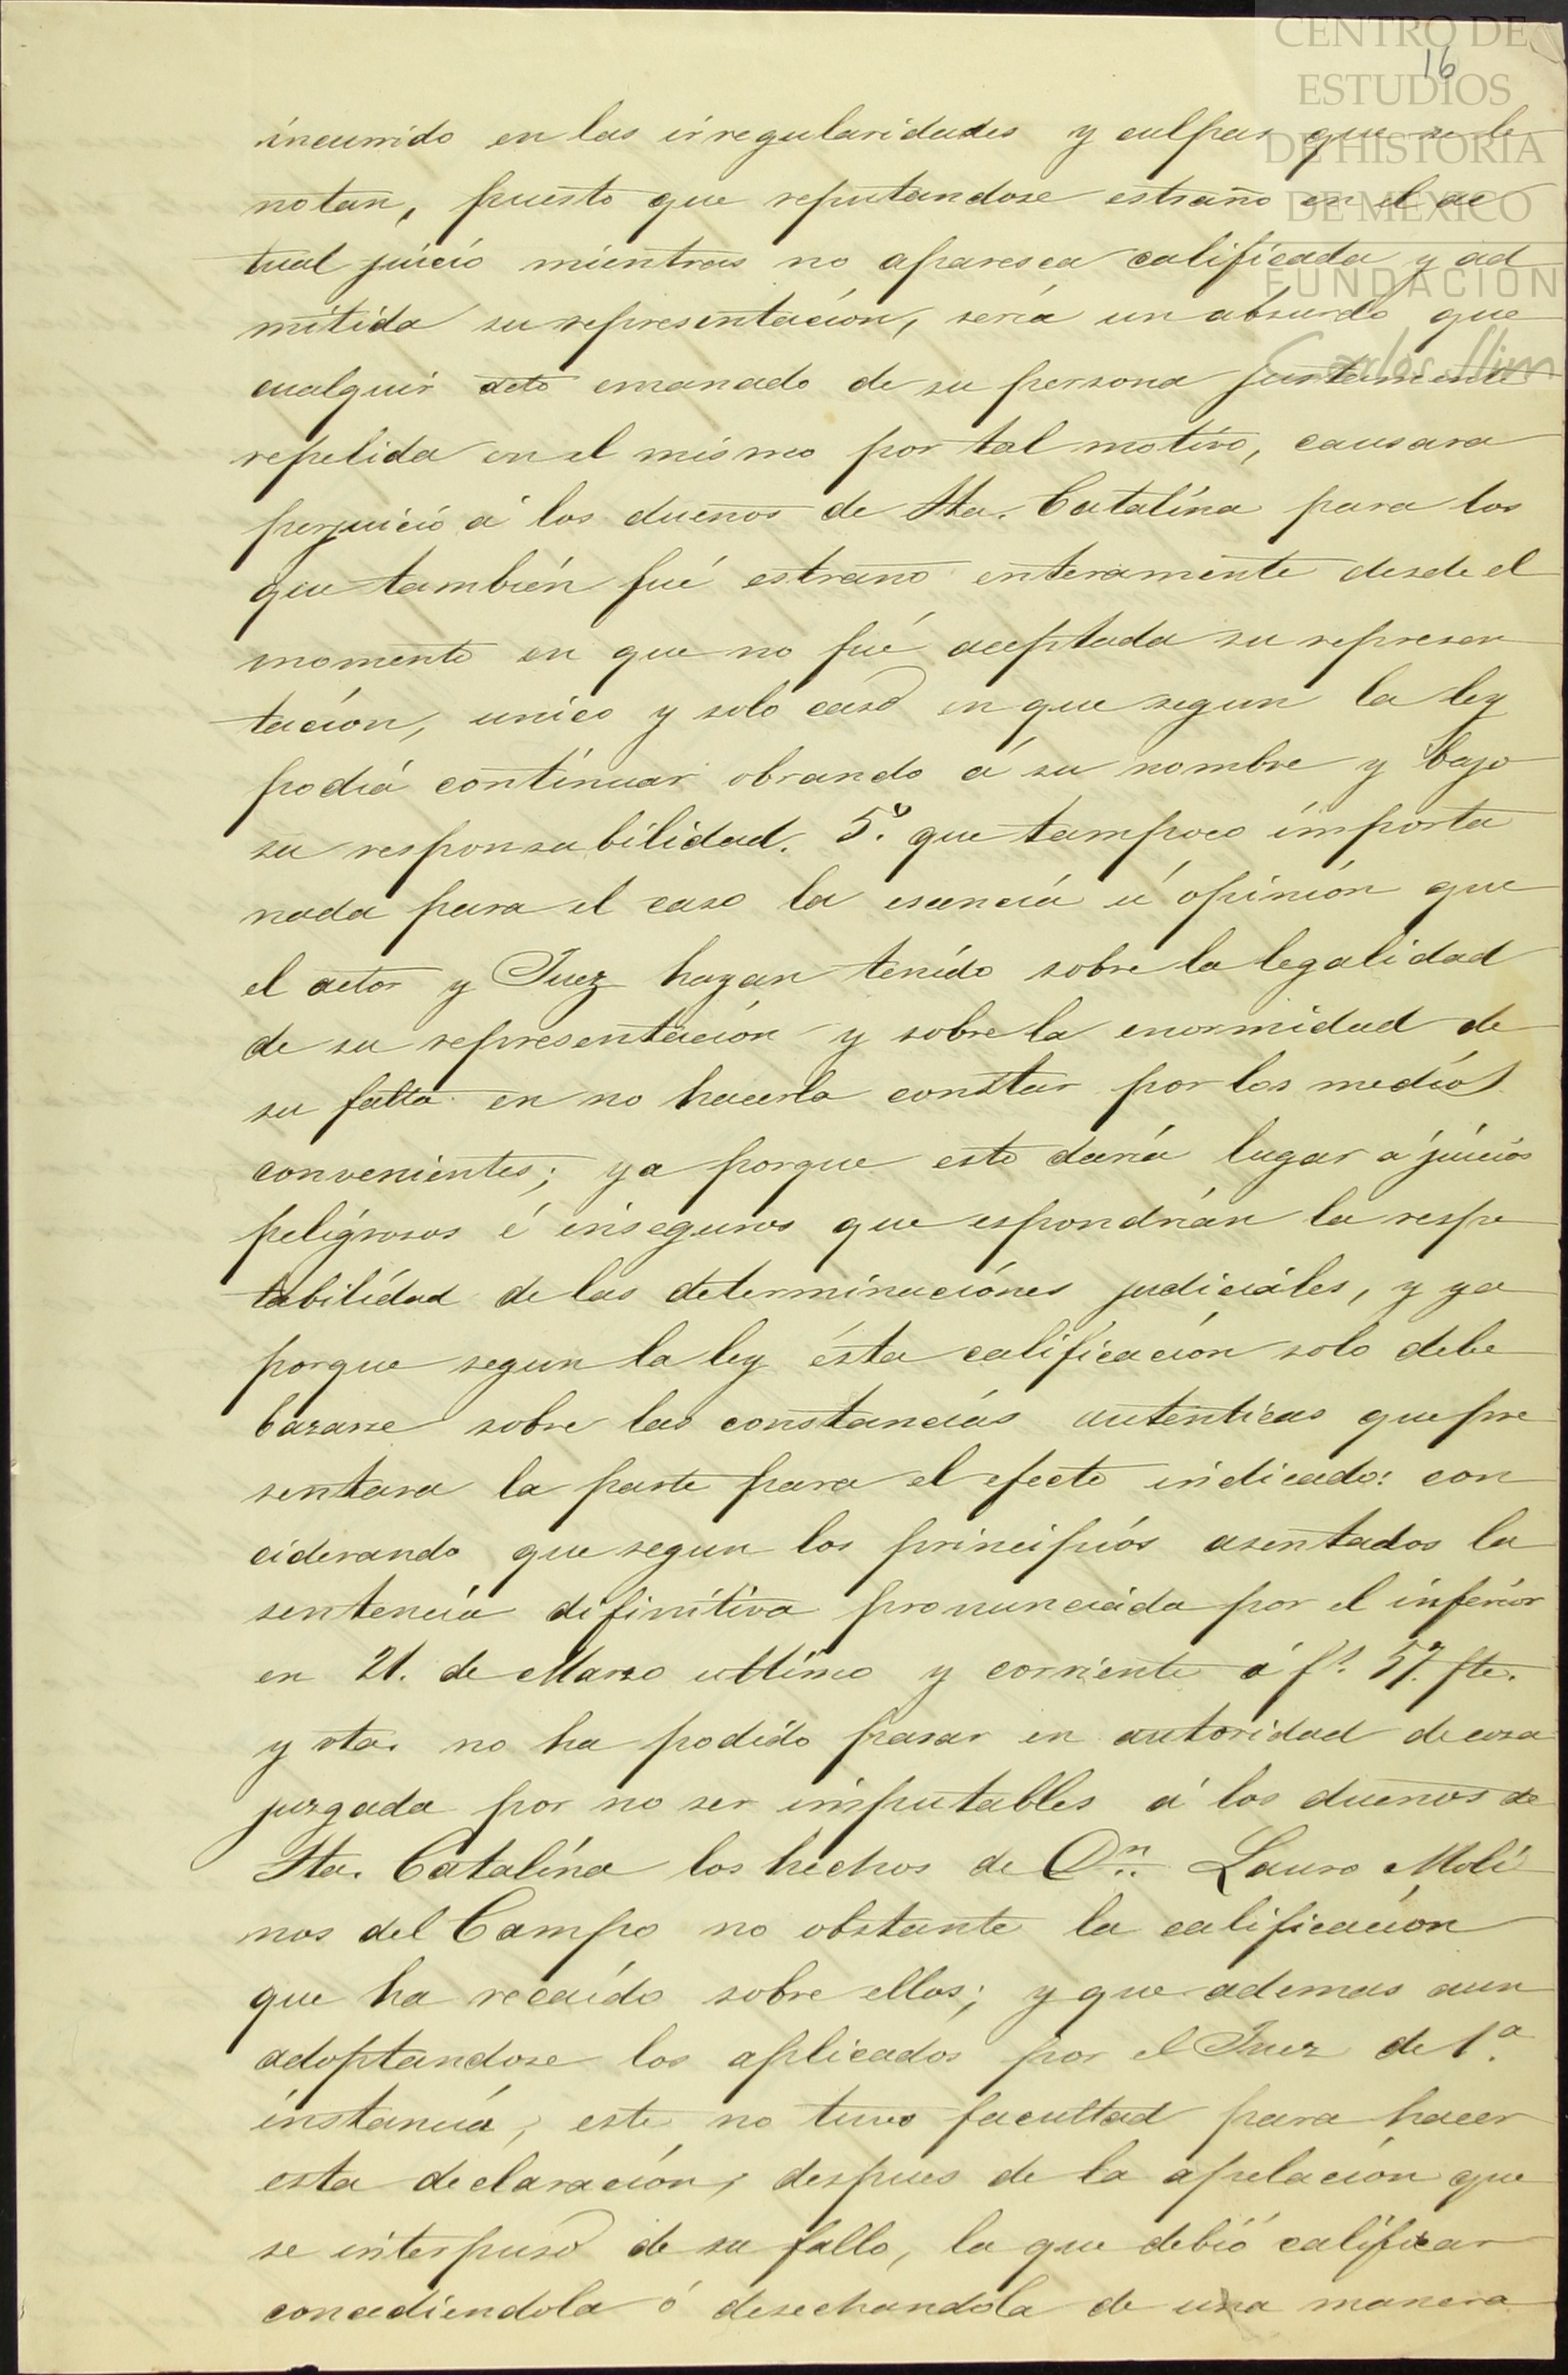 CENTRO DE
16
ESTUDIOS
DE HISTORIA
DE MEXICO
FUNDACION
Carlos Slim
incurrido en las irregularidades y culpas que se le
notan, puesto que reputandose estraño en el ac
tual juicio mientras no aparesca calificada y ad
mitida su representación, sería un absurdo que
cualquir acto emanado de su persona justamente
repelida en el mismo por tal motivo, causara
perjuició á los dueños de Sta. Catalina para los
que también fué estraño enteramente desde el
momento en que no fué aceptada su represen
tación, unico y solo caso en que segun la ley
podiá continuar obrando á su nombre y bajo
su responsabilidad. 5º. que tampoco importa
nada para el caso la esenciá ú opinión que
el actor y Juez hayan tenido sobre la legalidad
de su representación y sobre la enormidad de
su falta en no hacerla constar por los medios
convenientes; ya porque esto daría lugar a juicios
peligrosos é inseguros que espondrián la respe
tabilidad de las determinaciónes judiciáles, y ya
porque segun la ley ésta calificación solo debe
bazarse sobre las constanciás autenticas que pre
sentara la parte para el efecto indicado: con
ciderando que segun los principiós asentados la
sentencia difinitiva pronunciada por el inferior
en 21. de Marzo ultimo y corriente á fs. 57. fte.
y vta. no ha podido pasar en autoridad de cosa
juzgada por no ser imputables á los dueños de
Sta. Catalina los hechos de Dn. Lauro Moli
nos del Campo no obstante la calificación
que ha recaído sobre ellos; y que ademas aun
adoptandose los aplicados por el Juez de 1ª.
instanciá, este no tuvo facultad para hacer
esta declaración, despues de la apelación que
se interpuso de su fallo, la que debió calificar
concediendola ó desechandola de una manera